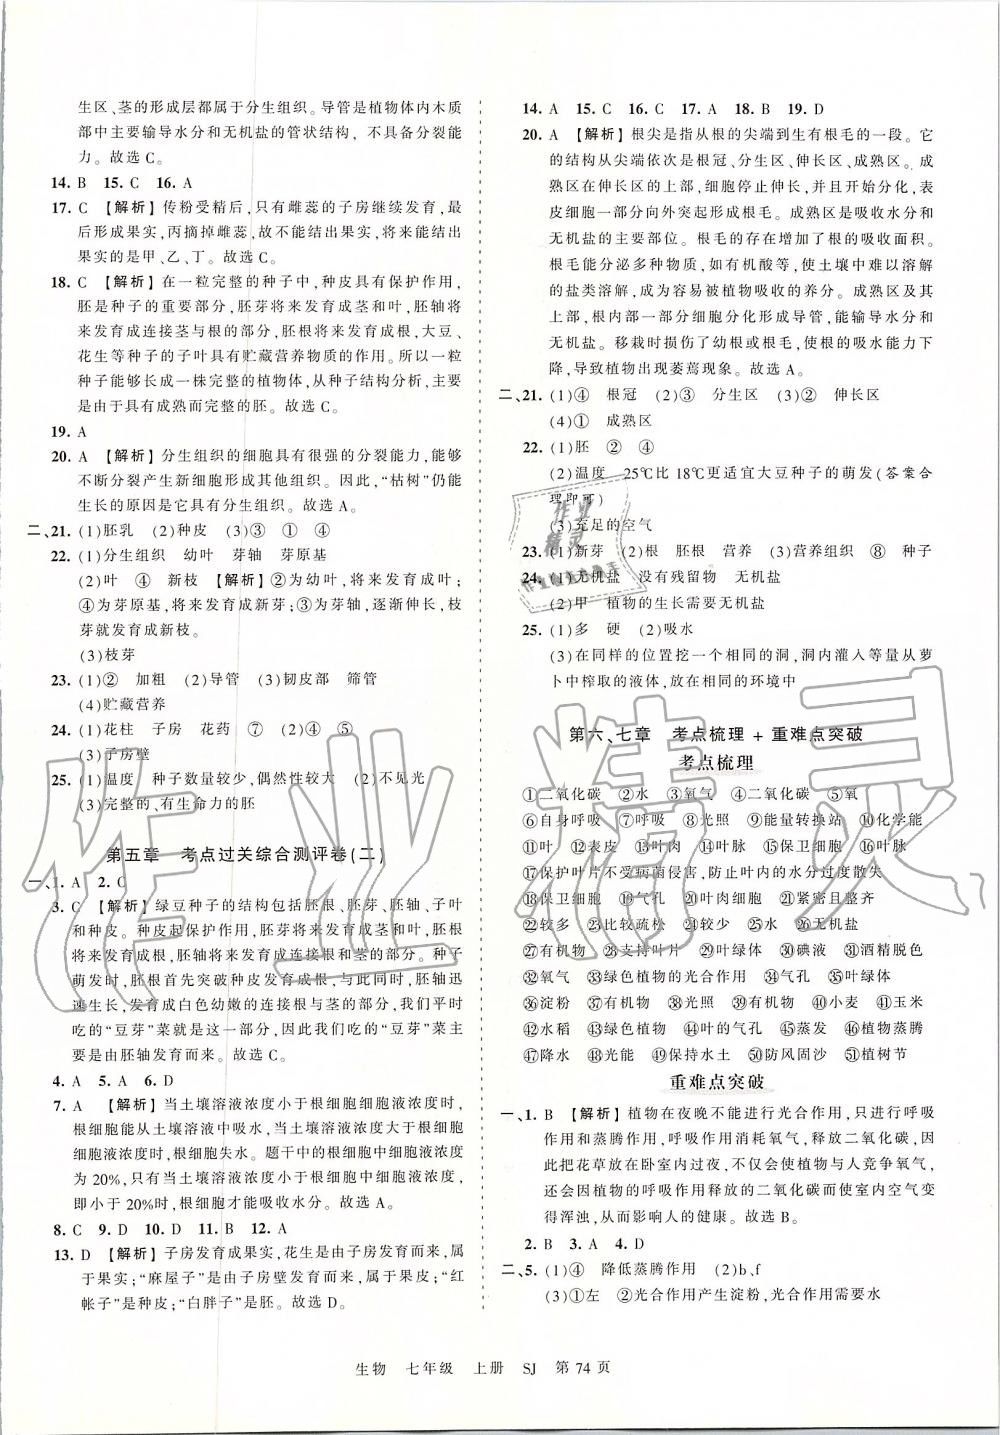 生区、茎的形成层都属于分生组织。导管是植物体内木质
部中主要输导水分和无机盐的管状结构，不具备分裂能
力。故选C。
14. B 15. C 16. A
17. C 【解析】传粉受精后,只有雌蕊的子房继续发育,最
后形成果实,丙摘掉雌蕊,故不能结出果实,将来能结出
果实的是甲、乙、丁。故选C。
18. C 【解析】在一粒完整的种子中,种皮具有保护作用,
胚是种子的重要部分,胚芽将来发育成茎和叶,胚轴将
来发育成连接茎与根的部分,胚根将来发育成根,大豆、
花生等种子的子叶具有贮藏营养物质的作用。所以一粒
种子能够长成一株完整的植物体,从种子结构分析,主要是
由于具有成熟而完整的胚。故选C。
19. A
20. A 【解析】分生组织的细胞具有很强的分裂能力,能够
不断分裂产生新细胞形成其他组织。因此,“枯树”仍能
生长的原因是它具有分生组织。故选A。
二、21. (1)胚乳 (2)种皮 (3)③ ① ④
22. (1)分生组织 幼叶 芽轴 芽原基
(2)叶 ④ 新枝 【解析】②为幼叶,将来发育成叶;
④为芽原基,将来发育成新芽;③为芽轴,将来发育成茎,枝
芽就发育成新枝。
(3)枝芽
23. (1)② 加粗 (2)导管 (3)韧皮部 筛管
(4)贮藏营养
24. (1)花柱 子房 花药 ⑦ (2)④ ⑤
(3)子房壁
25. (1)温度 种子数量较少,偶然性较大 (2)不见光
(3)完整的、有生命力的胚
第五章 考点过关综合测评卷(二)
一、1. A 2. C
3. C 【解析】绿豆种子的结构包括胚根、胚芽、胚轴、子叶
和种皮。种皮起保护作用,胚芽将来发育成茎和叶,胚根
将来发育成根,胚轴将来发育成连接根和茎的部分。种子
萌发时,胚根首先突破种皮发育成根,与此同时,胚轴迅
速生长,发育成白色幼嫩的连接根与茎的部分,我们平时
吃的“豆芽”菜就是这一部分,因此我们吃的“豆芽”菜主
要是由胚轴发育而来。故选C。
4. A 5. A 6. D
7. A 【解析】当土壤溶液浓度小于根细胞细胞液浓度时,
根细胞能从土壤溶液中吸收水分;当土壤溶液浓度大于根
细胞细胞液浓度时,根细胞失水。题干中的根细胞中细胞液浓度
为20%,只有当土壤溶液浓度小于根细胞中细胞液浓度,
即小于20%时,根细胞才能吸收水分。故选A。
8. C 9. D 10. D 11. B 12. A
13. D 【解析】子房发育成果实,花生是由子房发育而来,属
于果实;“麻屋子”是由子房壁发育而来,属于果皮;“红
帐子”是种皮;“白胖子”是胚。故选D。
14. A 15. C 16. C 17. A 18. B 19. D
20. A 【解析】根尖是指从根的尖端到生有根毛的一段。它
的结构从尖端依次是根冠、分生区、伸长区、成熟区。成
熟区在伸长区的上部,细胞停止伸长,并且开始分化,表
皮细胞一部分向外突起形成根毛。成熟区是吸收水分和
无机盐的主要部位。根毛的存在增加了根的吸收面积。
根毛能分泌多种物质,如有机酸等,使土壤中难以溶解
的盐类溶解,成为容易被植物吸收的养分。成熟区及其
上部,根内部一部分细胞分化形成导管,能输导水分和
无机盐。移栽时损伤了幼根或根毛,使根的吸水能力下
降,导致植物出现萎蔫现象。故选A。
二、21. (1)④ 根冠 (2)③ 分生区 (3)② 伸长区
(4)① 成熟区
22. (1)胚 ② ④
(2)温度 25℃比18℃更适宜大豆种子的萌发(答案合
理即可)
(3)充足的空气
23. (1)新芽 (2)根 胚根 营养 (3)营养组织 ⑧ 种子
24. (1)无机盐 没有残留物 无机盐
(2)甲 植物的生长需要无机盐
25. (1)多 硬 (2)吸水
(3)在同样的位置挖一个相同的洞,洞内灌入等量从萝
卜中榨取的液体,放在相同的环境中
第六、七章 考点梳理+重难点突破
考点梳理
①二氧化碳 ②水 ③氧气 ④二氧化碳 ⑤氧
⑥自身呼吸 ⑦呼吸 ⑧光照 ⑨能量转换站 ⑩化学能
⑪叶片 ⑫叶 ⑬表皮 ⑭叶肉 ⑮保卫细胞 ⑯叶脉
⑰保护叶片不受病菌侵害,防止叶内的水分过度散失
⑱保卫细胞 ⑲气孔 ⑳叶肉细胞 ㉑紧密且整齐
㉒较多 ㉓比较疏松 ㉔较少 ㉕水 ㉖无机盐
㉗有机物 ㉘支持叶片 ㉙叶绿体 ㉚碘液 ㉛酒精脱色
㉜氧气 ㉝绿色植物的光合作用 ㉞气孔 ㉟叶绿体
㊱淀粉 ㊲有机物 ㊳光照 ㊴有机物 ㊵小麦 ㊶玉米
㊷水稻 ㊸绿色植物 ㊹叶的气孔 ㊺蒸发 ㊻植物蒸腾
㊼降水 ㊽光能 ㊾保持水土 ㊿防风固沙 51植树节
重难点突破
一、1. B 【解析】植物在夜晚不能进行光合作用,只进行呼吸
作用和蒸腾作用,呼吸作用消耗氧气,释放二氧化碳,因
此把花草放在卧室内过夜,不仅会造成植物与人竞争氧气,
还会因植物的呼吸作用释放的二氧化碳而使室内空气变
得浑浊,从而影响人的健康。故选B。
2. B 3. A 4. D
二、5. (1)④ 降低蒸腾作用 (2)b、f
(3)①左 ②光合作用产生淀粉,光合作用需要水
生物 七年级 上册 SJ 第74页
作业精灵